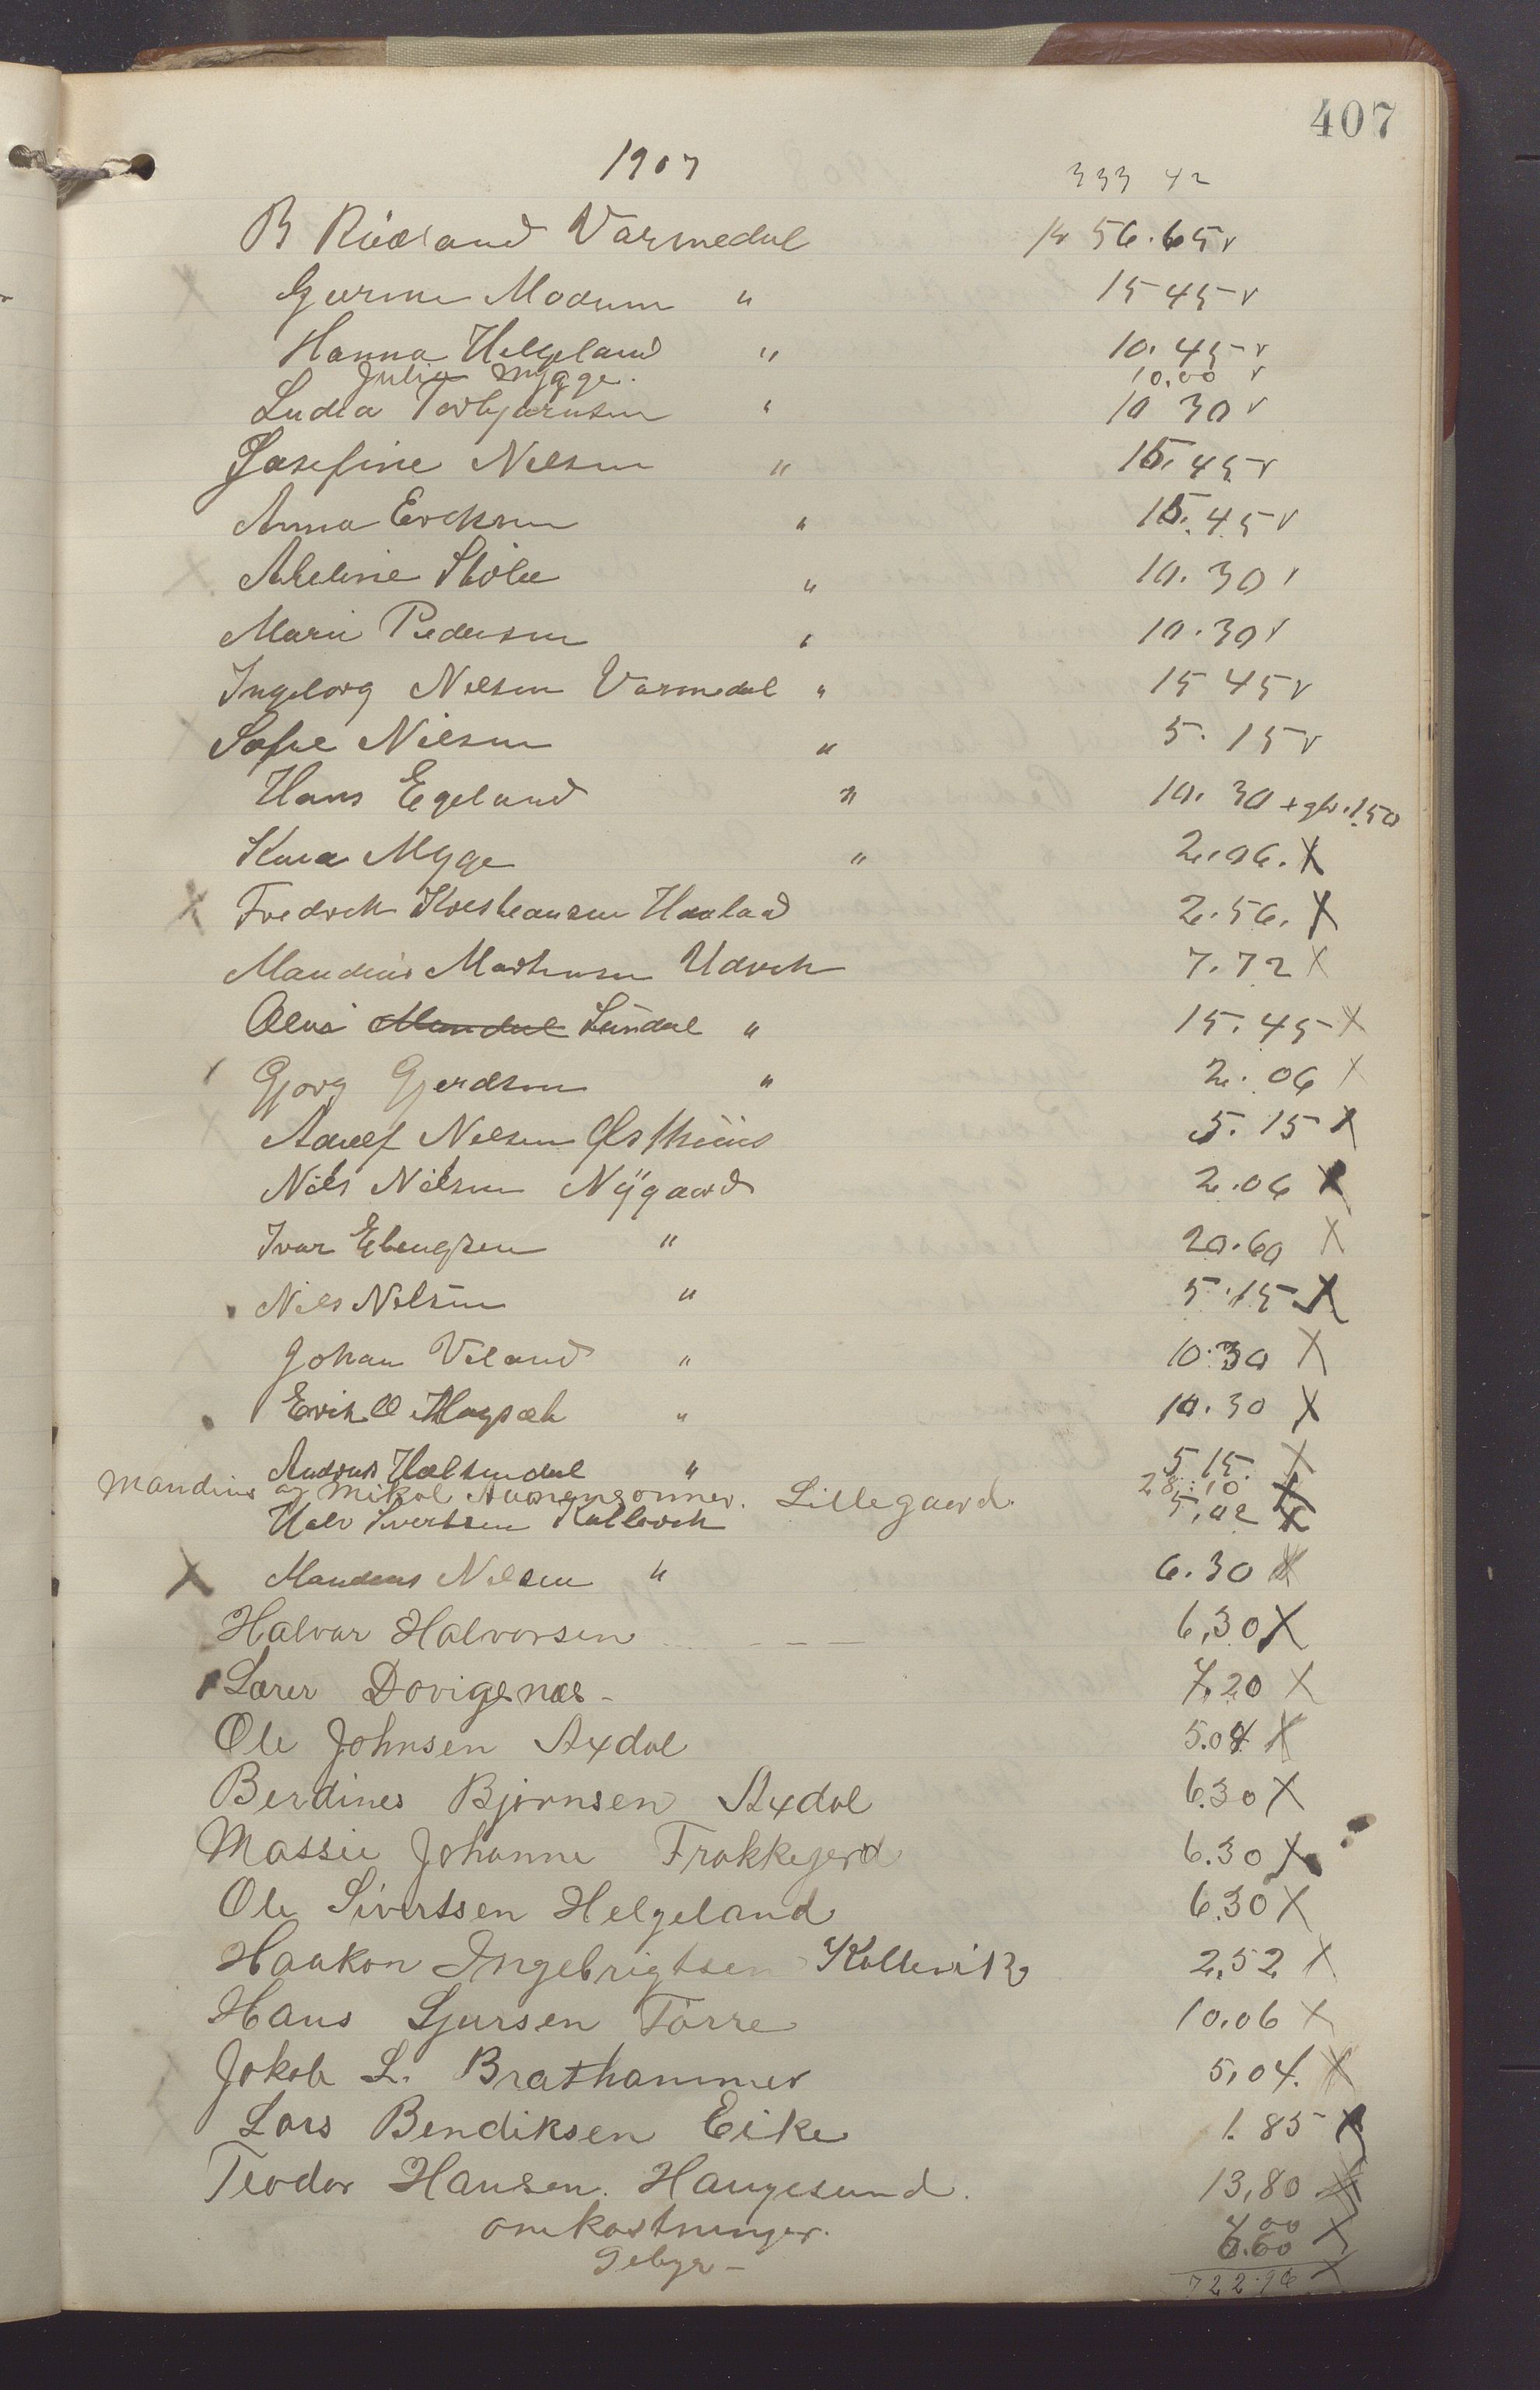 407
1907 333 42
B Rüdland Varmedal kr 56.65 v
Gurine Modum " 15 45 v
Hanna Helgeland " 10.45 v
Julia Mygge. 10.00 v
Ludia Torbjørnsen " 10 30 v
Josefine Nilsen " 15.45 v
Anna Ericksen " 15.45 v
Abeline Støle " 10.30 v
Marie Pedersen " 10.30 v
Ingeborg Nilsen Varmedal " 15 45 v
Sofie Nilsen " 5.15 v
Hans Egeland " 10.30 + gbr. 1.50
Kara Mygge " 2.06. X
X Fredrik Kristiansen Haaland 2.56. X
Maudius Mortensen Udvik 7.72 X
Olai Mandal Lündal " 15.45 X
Gjorg Gjerdsen " 2.06 X
Adolf Nilsen Østhuus 5.15 X
Nils Nilsen Nÿgaard 2.06 X
Ivar Elengsen " 20.60 X
Nils Nilsen " 5.15 X
Johan Veland " 10.30 X
Erik O Haysæk " 10.30 X
Andreas Halsendal " 5 15. X
Mandius og Mikal Aamensønner. Lillegaard. 28.10 X
Halv Sivertsen Kallevik 5,02 X
X Maudeus Nilsen " 6.30 X
Halvar Halvorsen - - - 6,30 X
Lærer Dovigenæs - 7.20 X
Ole Johnsen Axdal 5.04 X
Berdines Bjørnsen Axdal 6.30 X
Massie Johanne Frakkegerd 6.30 X
Ole Sivertsen Helgeland 6.30 X
Haakon Ingebrigtsen Kallevik 2,52 X
Hans Sjursen Tørre 10.06 X
Jakob L. Brathammer 5,04. X
Lars Bendiksen Eike 1.85 X
Teodor Hansen. Haugesund. 13,80 X
omkostninger. 4 00 X
Gebyr - 6.60
722.96 X